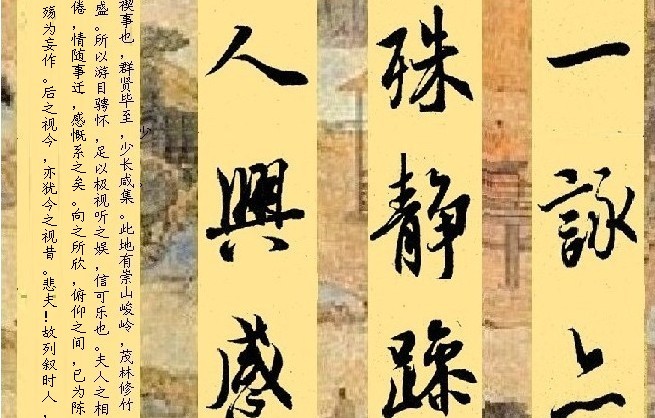 一詠
殊靜躁
人興感
禊事也，群贤毕至，少长咸集。此地有崇山峻岭，茂林修竹
盛。所以游目骋怀，足以极视听之娱，信可乐也。夫人之相
倦，情随事迁，感慨系之矣。向之所欣，俯仰之间，已为陈
殇为妄作。后之视今，亦犹今之视昔。悲夫！故列叙时人，